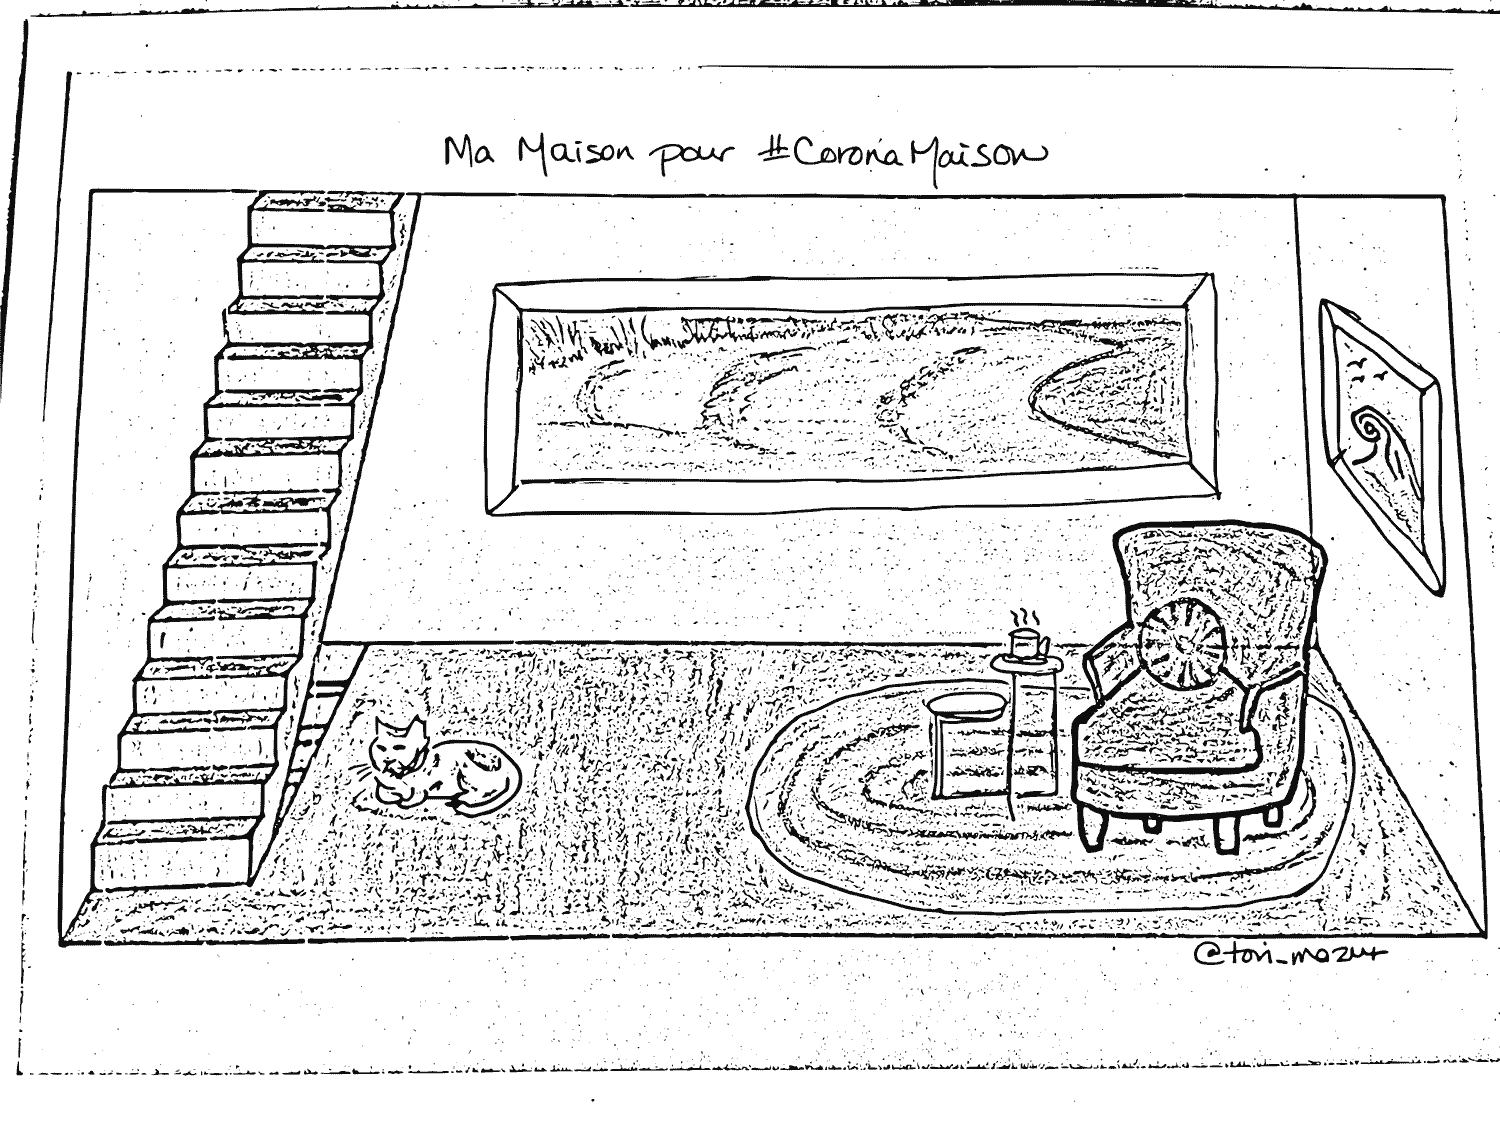 Ma Maison pour #CoronaMaison
@tori_mazur